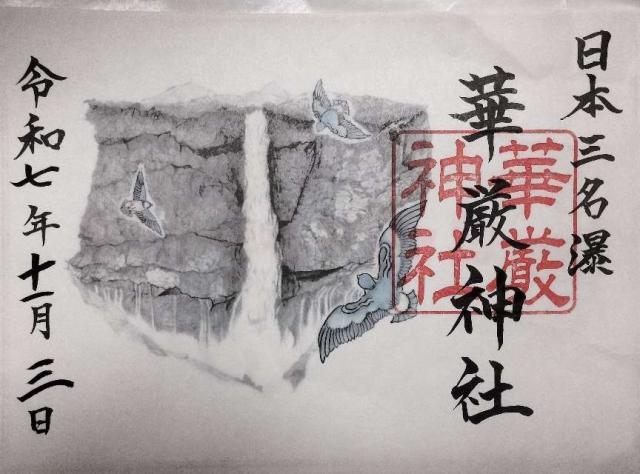 日本三名瀑
華厳神社
華厳
神社
令和七年十一月三日